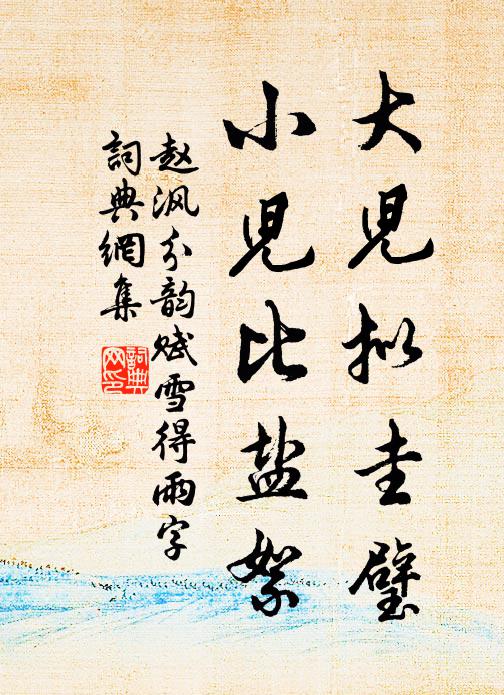 大児拟圭璧
小児比盐絮
赵沨分韵赋雪得雨字
詞典網集
詞典网印